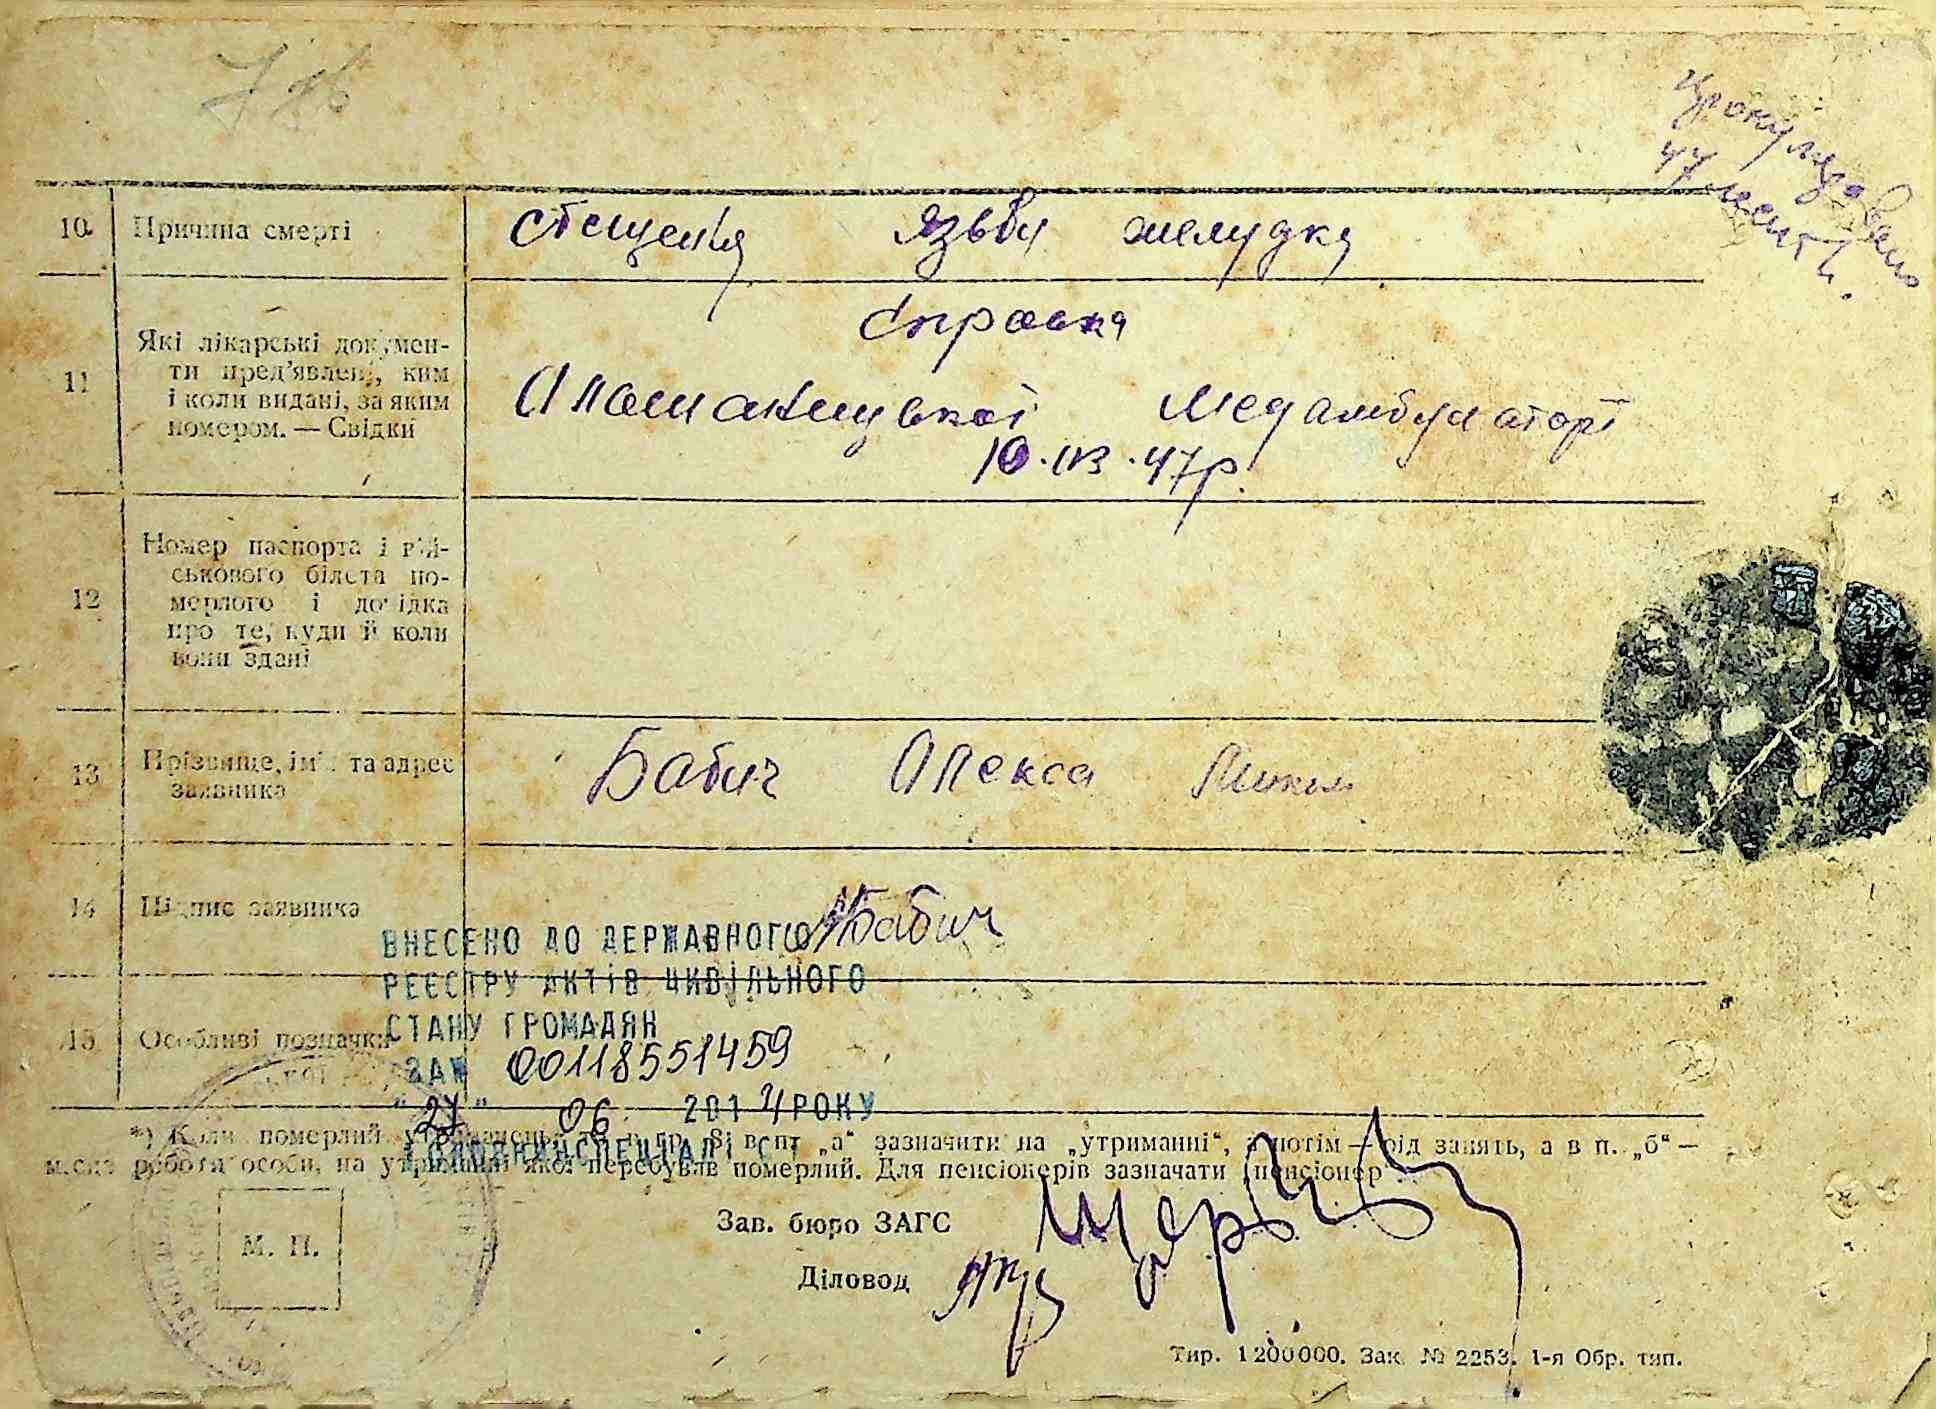 Пронумеровано
47 листів.
10. Причина смерті
язьви желудка
Справка
11 Які лікарські докумен-
ти пред’явлені, ким
і коли видані, за яким
номером. — Свідки
медамбулаторї
10. 47р.
12 Номер паспорта і вій-
ськового білета по-
мерлого і довідка
про те, куди й коли
вони здані
13 Прізвище, ім’я та адрес
заявника
Бабич Олекса
14 Підпис заявника
Бабич
ВНЕСЕНО ДО ДЕРЖАВНОГО
РЕЄСТРУ АКТІВ ЦИВІЛЬНОГО
СТАНУ ГРОМАДЯН
15 Особливі позначки
ЗА № 00118551459
"27" 06 2014 РОКУ
ГОЛОВНИЙ СПЕЦІАЛІСТ
*) Коли померлий утриманець, то в гр. 8 в пт „а“ зазначити на „утриманні“, а потім — рід занять, а в п. „б“ —
місце роботи особи, на утриманні якої перебував померлий. Для пенсіонерів зазначати „пенсіонер“
М. П.
Зав. бюро ЗАГС
Діловод
Тир. 1200000. Зак. № 2253. 1-я Обр. тип.